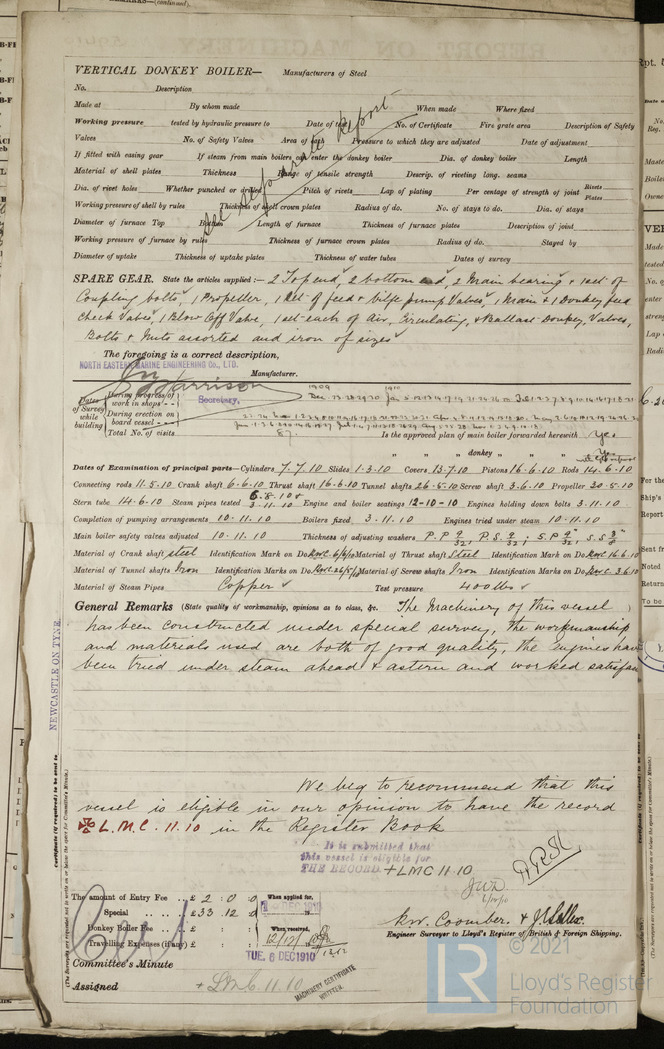 VERTICAL DONKEY BOILER— Manufacturers of Steel
No. Description
Made at By whom made When made Where fixed
Working pressure tested by hydraulic pressure to Date of test No. of Certificate Fire grate area Description of Safety
Valves No. of Safety Valves Area of each Pressure to which they are adjusted Date of adjustment
If fitted with easing gear If steam from main boilers can enter the donkey boiler Dia. of donkey boiler Length
Material of shell plates Thickness Range of tensile strength Descrip. of riveting long. seams
Dia. of rivet holes Whether punched or drilled Pitch of rivets Lap of plating Per centage of strength of joint Rivets Plates
Working pressure of shell by rules Thickness of shell crown plates Radius of do. No. of stays to do. Dia. of stays
Diameter of furnace Top Bottom Length of furnace Thickness of furnace plates Description of joint
Working pressure of furnace by rules Thickness of furnace crown plates Radius of do. Stayed by
Diameter of uptake Thickness of uptake plates Thickness of water tubes Dates of survey
See separate Report
SPARE GEAR. State the articles supplied:— 2 Top end, 2 bottom end, 2 Main bearing & 1 set of
Coupling bolts, 1 Propeller, 1 set of feed & bilge pump Valves, 1 Main & 1 Donkey feed
Check Valves, 1 Blow Off Valve, 1 set each of Air, Circulating, & Ballast Donkey, Valves,
Bolts & Nuts assorted and iron of sizes
The foregoing is a correct description,
NORTH EASTERN MARINE ENGINEERING Co., LTD.
Harrison Manufacturer.
Secretary.
Dates of Survey while building
During progress of work in shops - - 1909 1910
During erection on board vessel - - -
Total No. of visits 87. Is the approved plan of main boiler forwarded herewith Yes
" " donkey " " Yes
Dates of Examination of principal parts—Cylinders 7.7.10 Slides 1.3.10 Covers 13.7.10 Pistons 16.6.10 Rods 14.6.10
Connecting rods 11.5.10 Crank shaft 6.6.10 Thrust shaft 16.6.10 Tunnel shafts 26.5.10 Screw shaft 3.6.10 Propeller 20.5.10
Stern tube 14.6.10 Steam pipes tested 6.8.10 & 3.11.10 Engine and boiler seatings 12-10-10 Engines holding down bolts 3.11.10
Completion of pumping arrangements 10.11.10 Boilers fixed 3.11.10 Engines tried under steam 10.11.10
Main boiler safety valves adjusted 10.11.10 Thickness of adjusting washers P.P 9/32, P.S. 9/32; S.P 9/32, S.S 3/8"
Material of Crank shaft Steel Identification Mark on Do. 6/6/10 Material of Thrust shaft Steel Identification Mark on Do. 16.6.10
Material of Tunnel shafts Iron Identification Marks on Do. 26/5/10 Material of Screw shafts Iron Identification Marks on Do. 3.6.10
Material of Steam Pipes Copper Test pressure 400 lbs
General Remarks (State quality of workmanship, opinions as to class, &c. The Machinery of this vessel
has been constructed under special survey, the workmanship
and materials used are both of good quality, the engines have
been tried under steam ahead & astern and worked satisfac
We beg to recommend that this
vessel is eligible in our opinion to have the record
L.M.C. 11.10 in the Register Book
It is submitted that
this vessel is eligible for
THE RECORD. + LMC 11.10
The amount of Entry Fee . . £ 2 : 0 : 0 When applied for,
Special . . . £ 33 : 12 : 0
Donkey Boiler Fee . . . £ : : When received,
Travelling Expenses (if any) £ : : 12/12/10
TUE. 6 DEC 1910
Engineer Surveyor to Lloyd's Register of British & Foreign Shipping.
Committee's Minute
Assigned + LMC. 11.10
MACHINERY CERTIFICATE
WRITTEN.
NEWCASTLE ON TYNE
© 2021
LR
Lloyd's Register
Foundation